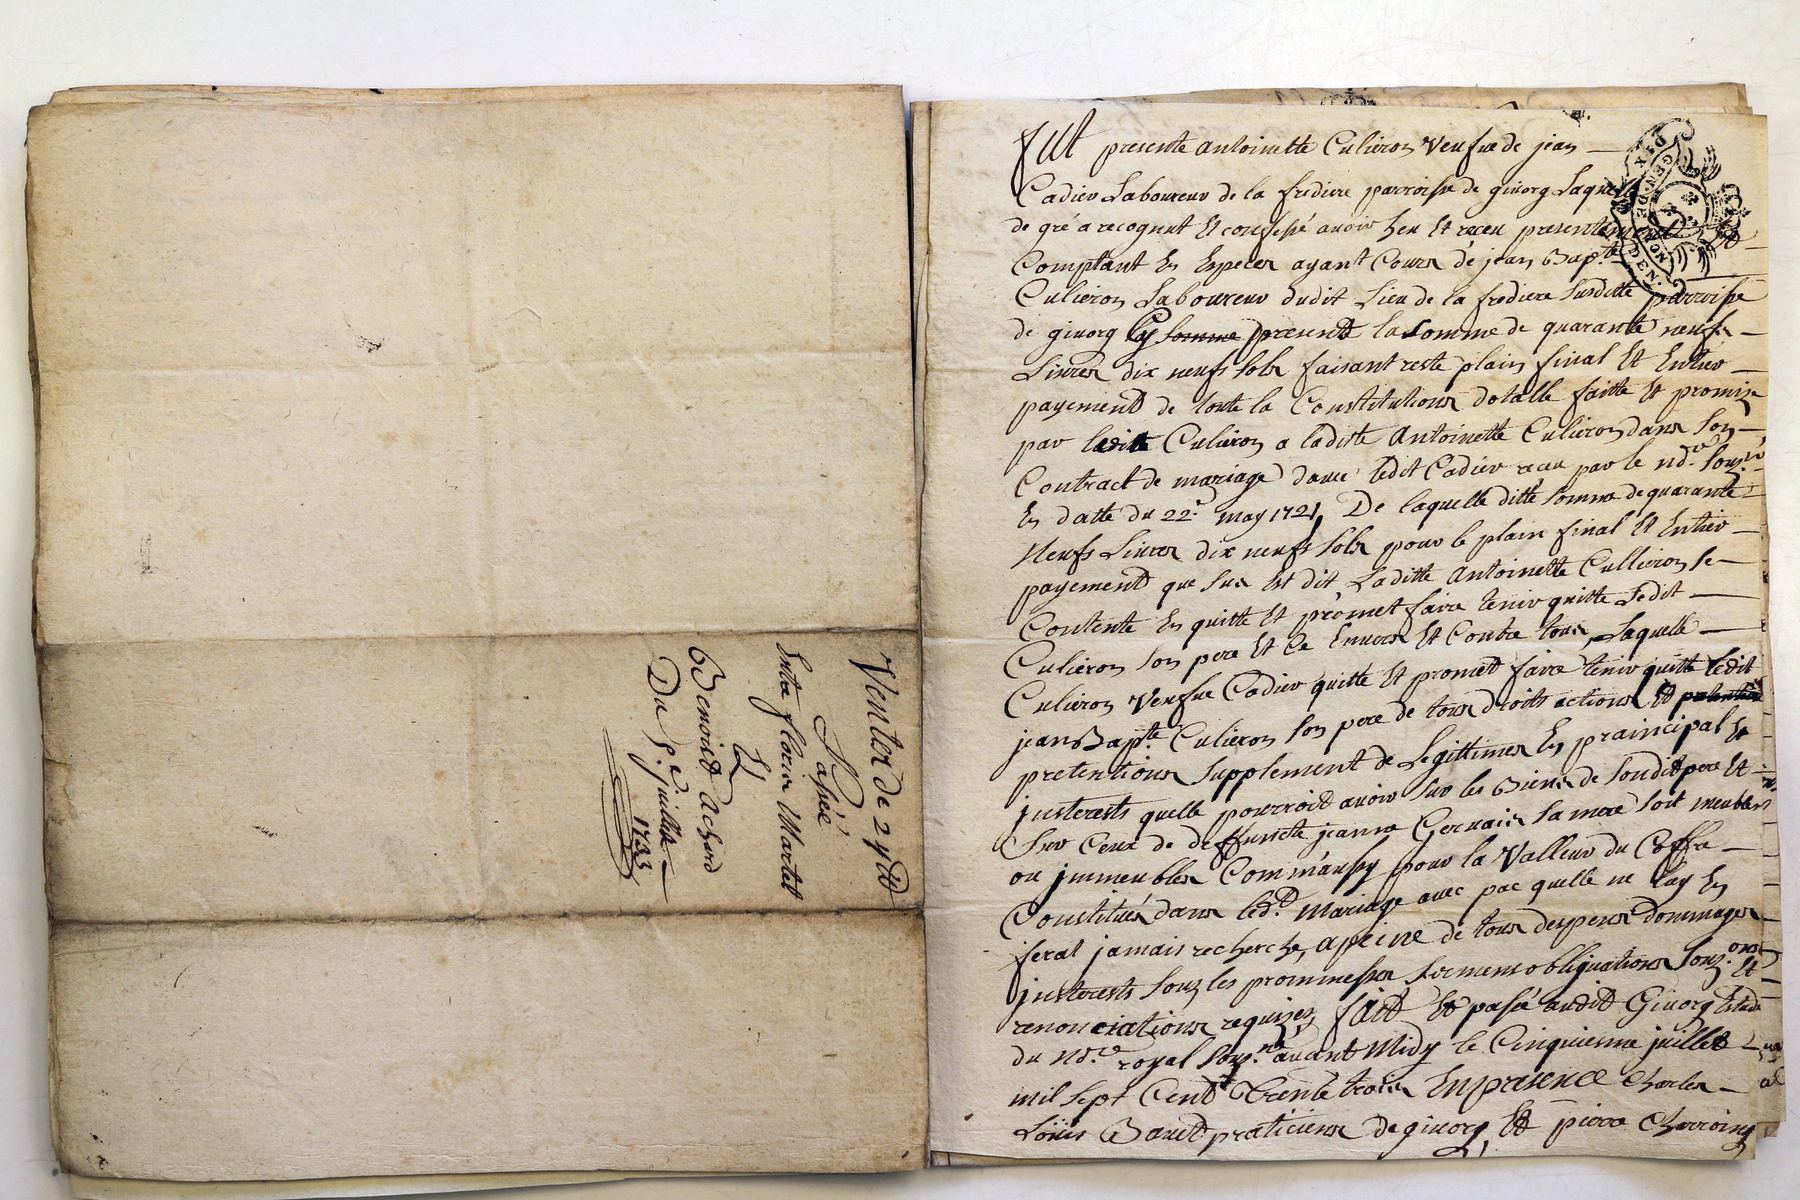 Vente de 24ld
Passée
Entre fleurie Martel
Et
Benoict Achard
Du 5.e Juillet
1733
Fut presente Antoinette Culieron Veufue de jean
Cadier Laboureur de la frediere parroisse de giuorg Laquelle
de gré a recognut Et confessé auoir heu Et receu presentement Et
Comptant En Especes ayant Cours de jean Bapte
Culieron Laboureur dudit Lieu de la frediere Susditte parroisse
de giuorg Cy somme present la somme de quarante neufs
Liures dix neufs sols faisant reste plain final Et Entier
payement de toute la Constitution dotalle faitte Et promise
par ledit Culieron a laditte Antoinette Culieron dans son
Contract de mariage dauec ledit Cadier receu par le nd.re souz.né
En datte du 22.e may 1721, De laquelle ditte somme de quarante
Neufs Liures dix neufs sols pour le plain final Et Entier
payement que sus Est dit Laditte Antoinette Cullieron se
Contente En quitte Et promet faire tenir quitte Ledit
Culieron son pere Et Ce Enuers Et Contre tous, Laquelle
Culieron Veufue Cadier quitte Et promet faire tenir quitte ledit
jean Bapte. Culieron son pere de tous droits actions Et
pretentions supplement de Legittimes En prainicipal Et
justerests quelle pourroit auoir sur les Biens de soudit pere Et
Sur Ceux de deffuncte jeanne Geruais sa mere soit meubles
ou jmmeubles Comm'aussy pour la Valleur du Coffre
Constitués dans led.t mariage auec pac quelle ne luy En
ferat jamais recherche, a peine de tous despens dommages
justerests souz les prommesses sermens obliguations souz.ons Et
renonciations requises, fait Et passé audit Giuorg Estude
du nd.re royal souz.né auant Midy le Cinquiesme juillet
mil sept Cent Trente trois En presence Charles
Loüis Bauet praticiens de giuorg, Et pierre